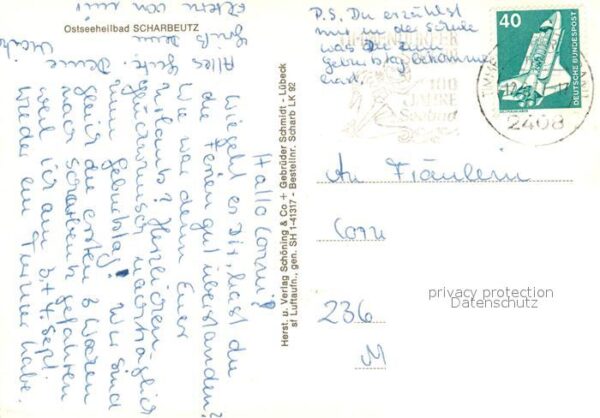 Ostseeheilbad SCHARBEUTZ
Hallo Conni!
Wie geht es Dir, hast du
die Ferien gut überstanden?
Wie war denn Euer
Urlaub? Herzlichen
Glückwunsch nachträglich
zum Geburtstag! Wir sind
gleich die ersten 3 Wochen
nach Scharbeutz gefahren
weil ich am 3.+4. Sept.
wieder ein Turnier habe.
Alles Gute Deine
Grüß Deine
Eltern von mir
P.S. Du erzählst
mir in der Schule
was Du zum
Geburtstag bekommen
hast.
Herst. u. Verlag Schöning & Co + Gebrüder Schmidt - Lübeck
sf Luftaufn., gen. SH 1-41317 - Bestellnr. Scharb LK 92
40
DEUTSCHE BUNDESPOST
100
JAHRE
Seebad
2408
An Fräulein
236
privacy protection
Datenschutz